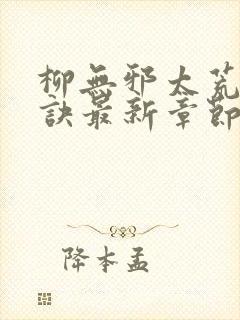 柳無邪太荒
訣最新章節
降本孟